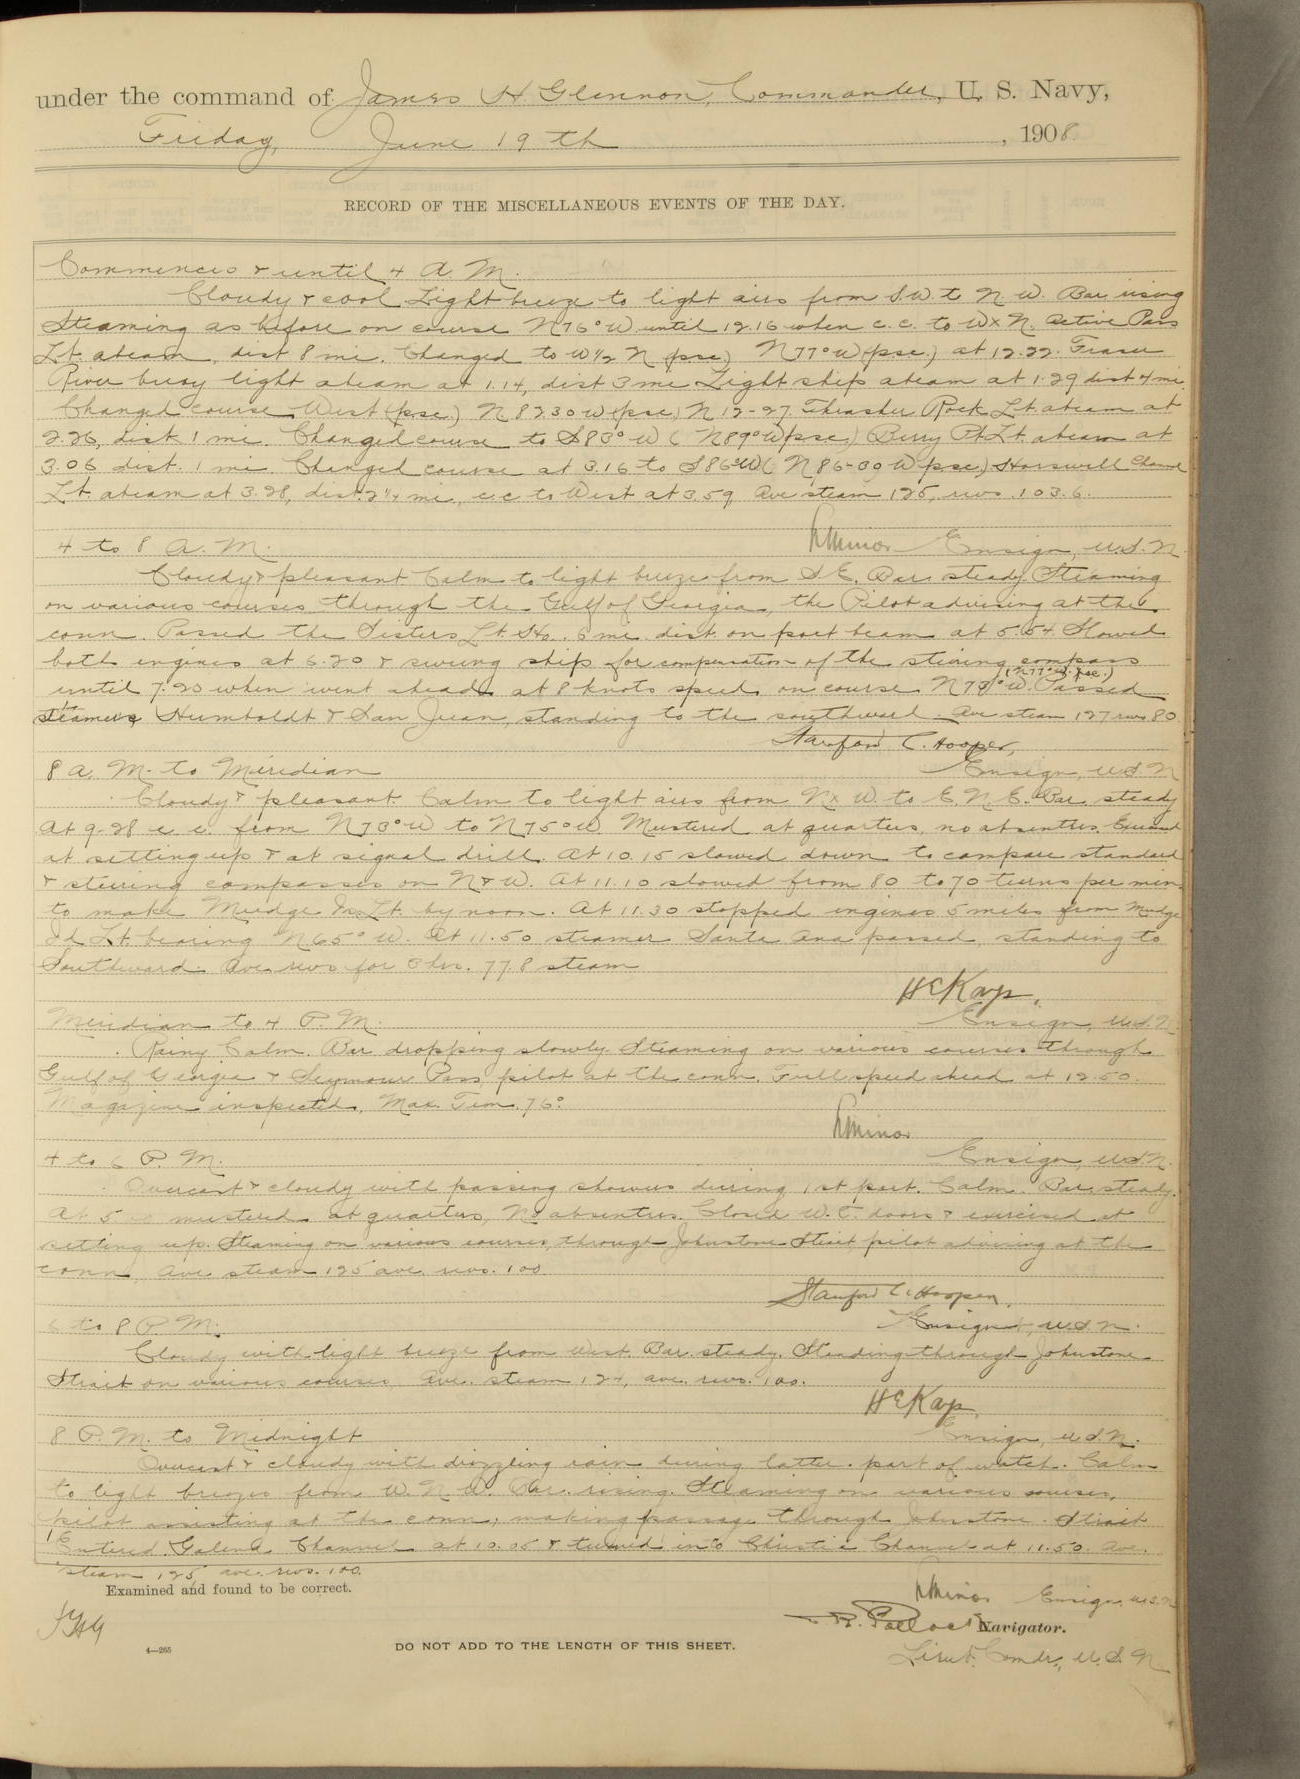 under the command of James H Glennon, Commander, U. S. Navy,
Friday, June 19th, 1908
RECORD OF THE MISCELLANEOUS EVENTS OF THE DAY.
Commences & until 4 A. M.
Cloudy & cool Light breeze to light airs from S.W. to N.W. Bar rising
Steaming as before on course N76°W until 12.16 when c.c. to WxN. Active Pass
Lt. abeam, dist 8 mi. Changed to W½N (psc.) N77°W (psc.) at 12.22. Fraser
River buoy light abeam at 1.14, dist 3 mi Light ship abeam at 1.29 dist 4 mi.
Changed course West (psc.) N8230W (psc) N 12-27. Thrasher Rock Lt. abeam at
2.26, dist. 1 mi. Changed course to S83°W (N89°W psc.) Berry Pt. Lt. abeam at
3.06 dist. 1 mi. Changed course at 3.16 to S86°W (N86-30 W psc.) Horswell Channel
Lt. abeam at 3.28, dist. 2¼ mi, c.c. to West at 3.59, Ave steam 125, revs. 103.6.
R Minor Ensign, U.S.N.
4 to 8 A. M.
Cloudy & pleasant Calm to light breeze from S.E. Bar. steady Steaming
on various courses through the Gulf of Georgia, the Pilot advising at the
conn. Passed the Sisters Lt. Ho. 6 mi. dist. on port beam at 5.54. Slowed
both engines at 6.20 & swung ship for compensation of the steering compass
until 7.20 when went ahead at 8 knots speed on course N73°W. (N77°W. psc.) Passed
steamers Humboldt & San Juan, standing to the southward. Ave steam 127 revs 80
Stanford C. Hooper,
Ensign, U.S.N
8 A. M. to Meridian
Cloudy & pleasant. Calm to light airs from NxW. to E.N.E. Bar. steady
At 9.28 c.c. from N73°W to N75°W Mustered at quarters, no absentees. Exercised
at setting up & at signal drill. At 10.15 slowed down to compare standard
& steering compasses on N & W. At 11.10 slowed from 80 to 70 turns per min.
to make Mudge Is. Lt. by noon. At 11.30 stopped engines 5 miles from Mudge
Id Lt. bearing N65°W. At 11.50 steamer Santa Ana passed, standing to
Southward. Ave. revs for 3 hrs. 77.8 steam
H E Kays,
Ensign, U.S.N.
Meridian to 4 P. M.
Rainy Calm. Bar dropping slowly. Steaming on various courses through
Gulf of Georgia & Seymour Pass, pilot at the conn. Full speed ahead at 12.50.
Magazine inspected, Max. Tem. 76°
R Minor
Ensign, U.S.N.
4 to 6 P. M.
Overcast & cloudy with passing showers during 1st part. Calm. Bar. steady.
At 5 mustered at quarters, No absentees. Closed W.T. doors & exercised at
setting up. Steaming on various courses, through Johnstone Strait, pilot advising at the
conn, Ave steam 125 ave. revs. 100
Stanford C. Hooper,
Ensign, U.S.N.
6 to 8 P. M.
Cloudy with light breeze from West. Bar. steady. Steading through Johnstone
Strait on various courses Ave. steam 124, ave. revs. 100.
H E Kays,
Ensign, U.S.N.
8 P. M. to Midnight
Overcast & cloudy with drizzling rain during latter part of watch. Calm
to light breezes from W.N.W. Bar. rising. Steaming on various courses,
pilot assisting at the conn, making passage through Johnstone Strait
Entered Galena Channel at 10.05 & turned into Christie Channel at 11.50. Ave.
steam 125, ave. revs. 100.
R Minor Ensign, U.S.N
Examined and found to be correct.
JHG
R. Pollock Navigator.
Lieut. Comdr., U.S.N
4—265
DO NOT ADD TO THE LENGTH OF THIS SHEET.